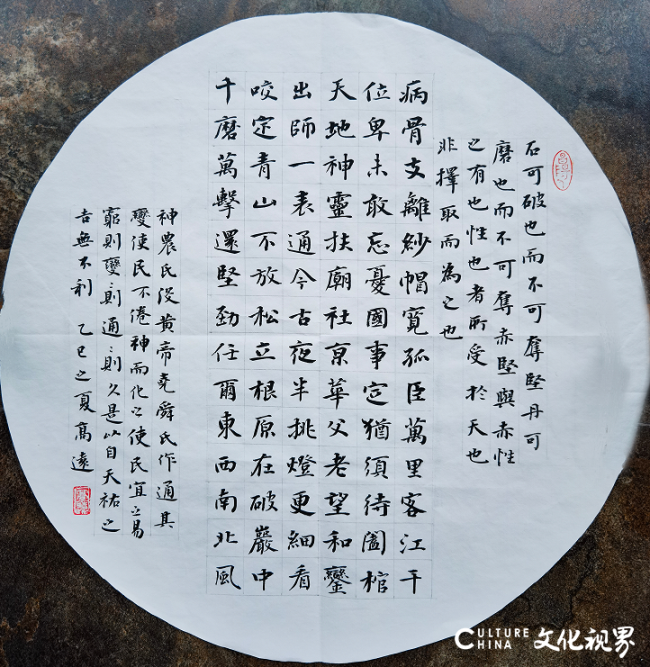 石可破也而不可奪堅丹可
磨也而不可奪赤堅與赤性
之有也性也者所受於天也
非擇取而為之也
病骨支離紗帽寬孤臣萬里客江干
位卑未敢忘憂國事定猶須待闔棺
天地神靈扶廟社京華父老望和鑾
出師一表通今古夜半挑燈更細看
咬定青山不放松立根原在破巖中
千磨萬擊還堅勁任爾東西南北風
神農氏沒黃帝堯舜氏作通其
變使民不倦神而化之使民宜之易
窮則變〻則通〻則久是以自天祐之
吉無不利 乙巳之夏高遠
CULTURE
CHINA
文化视界